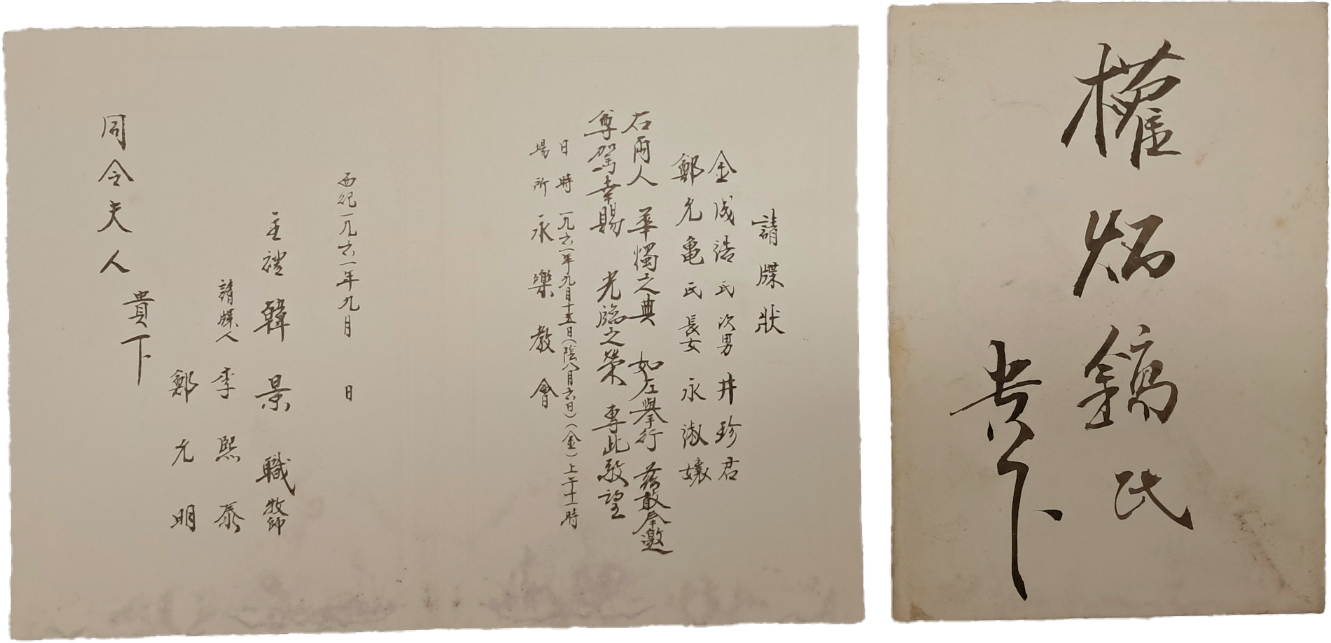 請牒狀
金成浩氏 次男 井珍君
鄭允龜氏 長女 永淑孃
右兩人 華燭之典 如左擧行 茲敢奉邀
尊駕幸賜 光臨之榮 專此敬望
日時 一九六一年九月十五日(陰八月六日)(金)上午十一時
場所 永樂教會
西紀一九六一年九月 日
主禮 韓景職 牧師
請牒人 李熙泰
鄭允明
同令夫人 貴下
權炳鎬氏
貴下